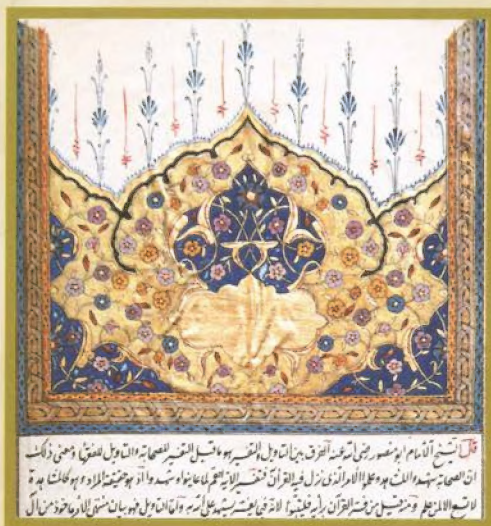 قال الشيخ الامام ابو منصور رضى الله عنه الفرق بين التاويل والتفسير هو ما قيل التفسير للصحابة والتاويل للفقهاء ومعنى ذلك
ان الصحابة شهدوا المشاهد وعلموا الامر الذى نزل فيه القرآن فتفسير الاية لما عاينوا وشهدوا اذ هو حقيقة المراد وهو كالمشاهدة
لا تسع الا لمن علم ومنه قيل من فسر القرآن برأيه فليتبوأ لانه فيما يفسر يشهد على الله به واما التاويل فهو بيان منتهى الامر ماخوذ من آل